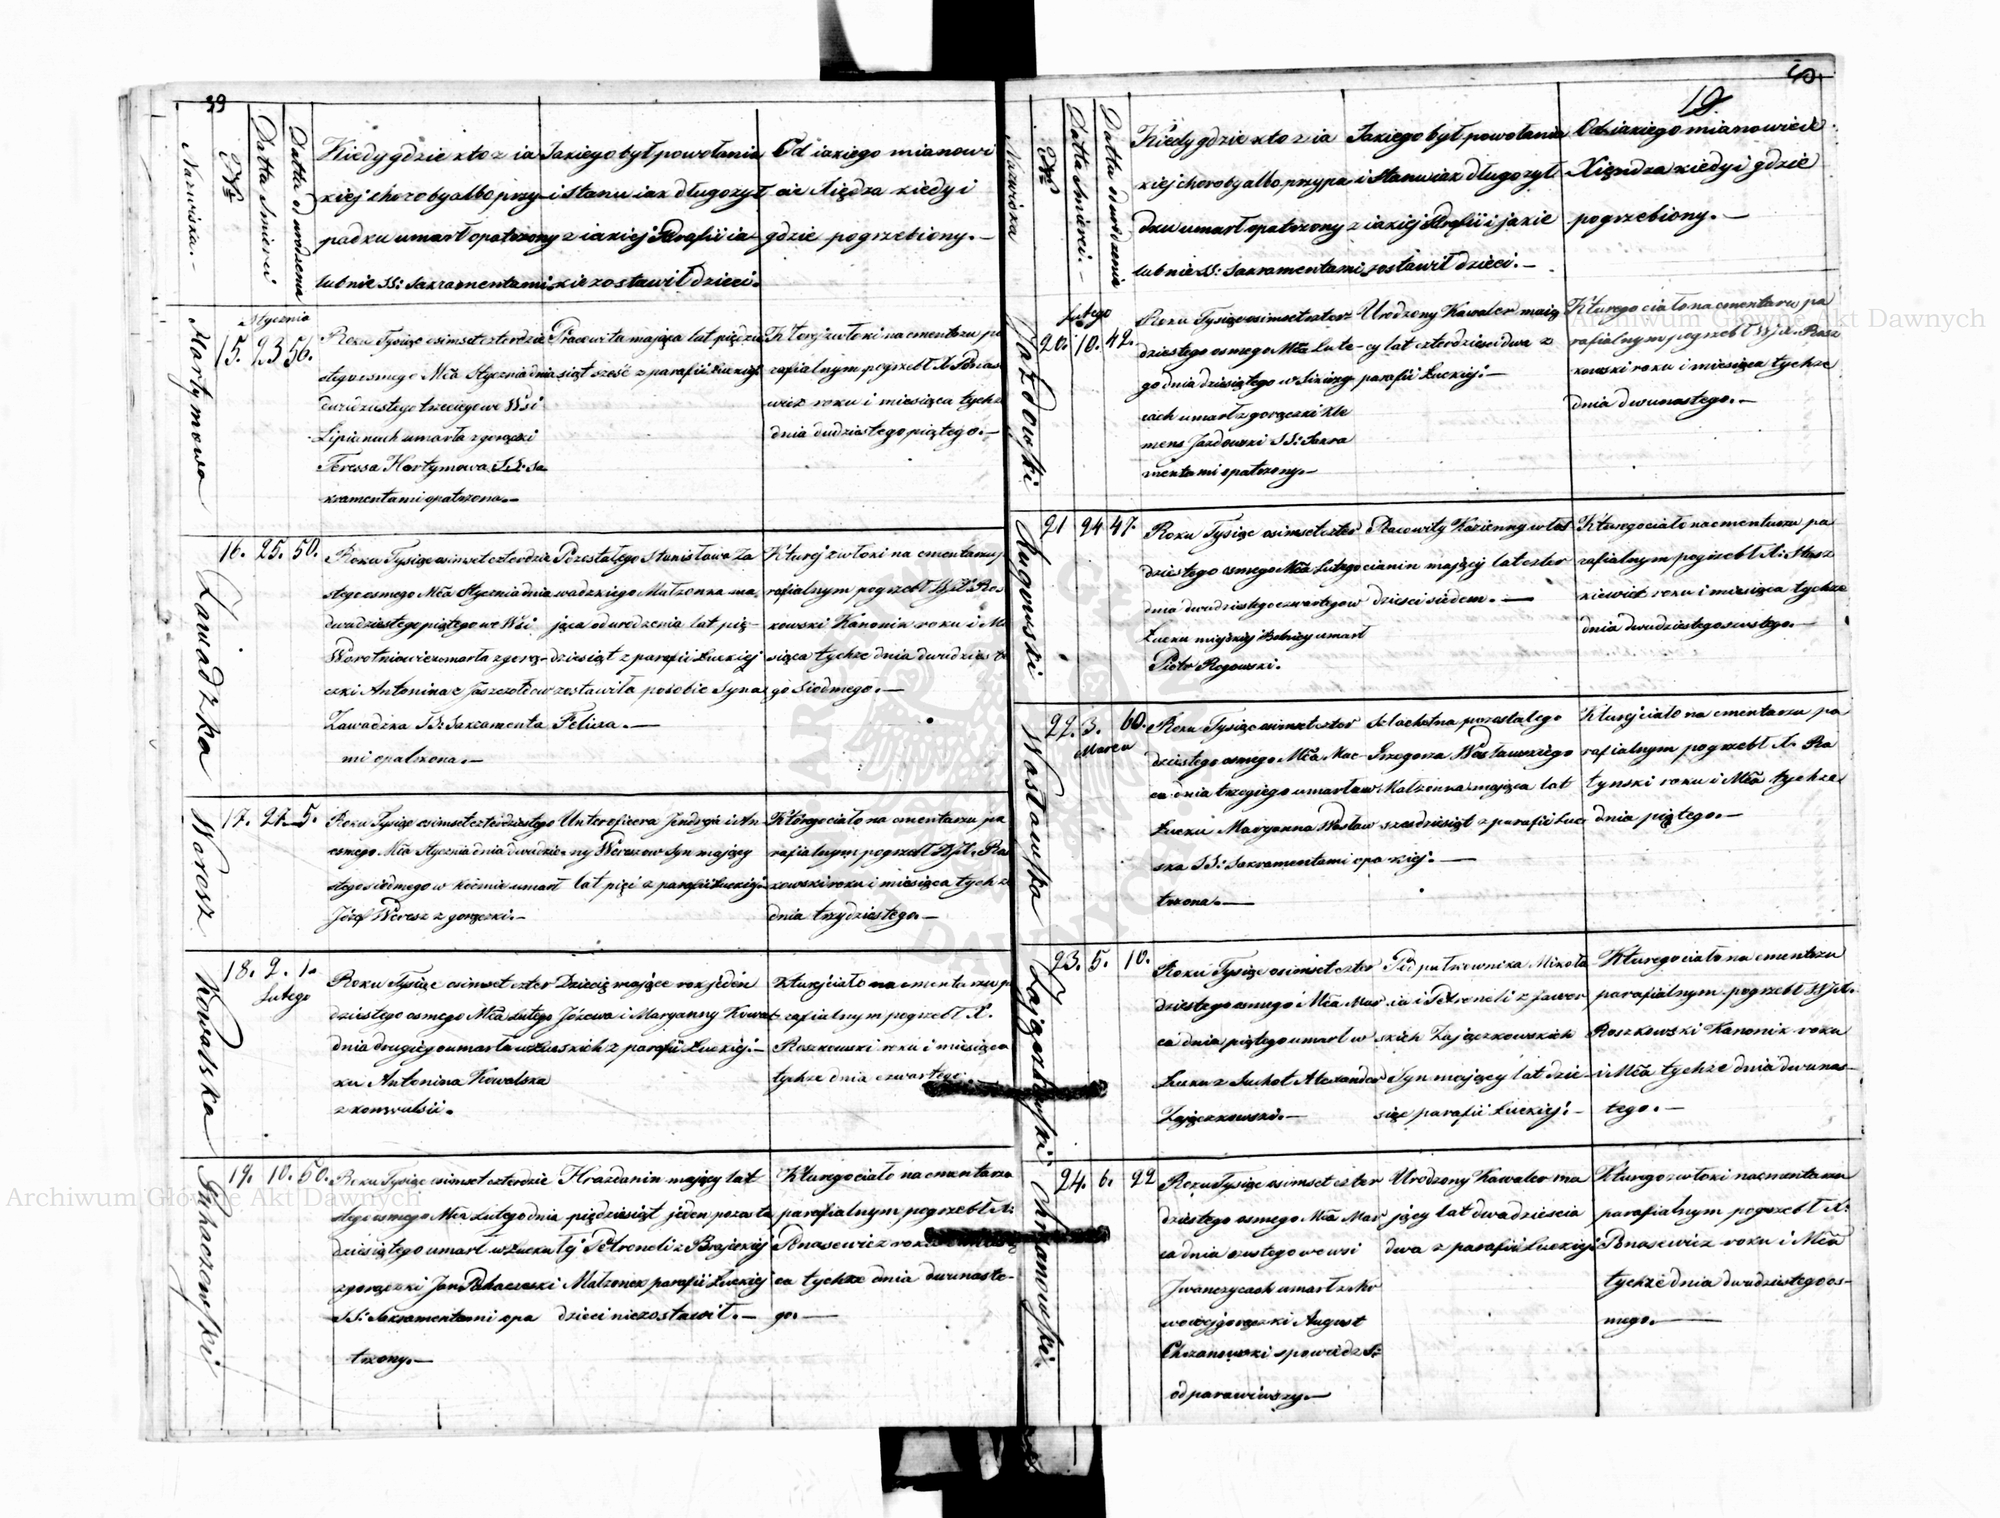 39
Nazwiska.
№
Datta Smierci
Datta od urodzenia
Kiedy gdzie kto z ia
kiej choroby albo przy
padku umarł opatrzony
lub nie SS: Sakramentami
Jakiego był powołania
i Stanu iak długo żył
z iakiej Parafii ia
kie zostawił dzieci.
Od iakiego mianowi
cie Xiędza kiedy i
gdzie pogrzebiony.
Hartymowa
Stycznia
15. 23 56.
Roku Tysiąc osimset czterdzie
stego osmego Mca Stycznia dnia
dwudziestego trzeciego we Wsi
Lipianach umarła z gorączki
Teressa Hartymowa SS: Sa
kramentami opatrzona.
Pracowita mająca lat pięćdzie
siąt sześć z parafii Łuckiej
Którey zwłoki na cmentarzu pa
rafialnym pogrzebł X. Ponas
wicz roku i miesiąca tychże
dnia dudziestego piątego.
Zawadzka
16. 25. 50.
Roku Tysiąc osimset czterdzie
stego osmego Mca Stycznia dnia
dwadziestego piątego we Wsi
Worotniowie umarła z gorą-
czki Antonina z Jaszczołdow
Zawadzka SS: Sakramenta
mi opatrzona.
Pozostałego Stanisława Za
wadzkiego Małżonka ma
jąca od urodzenia lat pię-
dziesiąt z parafii Łuckiej
zostawiła po sobie Syna
Felixa.
Której zwłoki na cmentarzu p
rafialnym pogrzebł WJX. Ros
kowski Kanonik roku i Mie
siąca tychże dnia dwudzieste
go Siodmego.
Woresz
17. 27. 5.
Roku Tysiąc osimset czterdziestego
osmego Mca Stycznia dnia dwudzie
stego siodmego w Kiemie umarł
Józef Woresz z gorączki.
Unteroficera Jendrzja i An
ny Woreszow Syn mający
lat pięć z parafii Łuckiej
Którego ciało na cmentarzu pa
rafialnym pogrzebł WJX. Ros
kowski roku i miesiąca tychże
dnia trzydziestego.
Kowalska
18. 2. 1.
Lutego
Roku Tysiąc osimset czter
dziestego osmego Mca Lutego
dnia drugiego umarła w Łuc
ku Antonina Kowalska
z konwulsii.
Dziecię mające rok jeden
Józewa i Maryanny Kowal
skich z parafii Łuckiej.
Której ciało na cmentarzu p
rafialnym pogrzebł X.
Roszkowski roku i miesiąca
tychże dnia czwartego.
Puhaczewski
19. 10. 50.
Roku Tysiąc osimset czterdzie
stego osmego Mca Lutego dnia
dziesiątego umarł w Łucku
z gorączki Jan Puhaczewski
SS: Sakramentami opa
trzony.
Hrażdanin mający lat
pięćdziesiąt jeden pozosta
łej Petroneli z Brajskiej
Małżonek parafii Łuckiej
dzieci nie zostawił.
Kturego ciało na cmentarzu
parafialnym pogrzebł X.
Ponasewicz roku
ca tychże dnia dwunaste-
go.
40
19
Nazwiska
№
Datta Smierci.
Datta od urodzenia
Kiedy gdzie kto z ia
kiej choroby albo przypa
dku umarł opatrzony
lub nie SS: Sakramentami
Jakiego był powołania
i Stanu iak długo żył
z iakiej Parafii i jakie
zostawił dzieci.
Od iakiego mianowicie
Xiędza kiedy i gdzie
pogrzebiony.
Jazdowski
Lutego
20. 10. 42.
Roku Tysiąc osimset czter
dziestego osmego Mca Lute-
go dnia dziesiątego w
cach umarł z gorączki Kle
mens Jazdowski SS: Sakra
mentami opatrzony.
Urodzony Kawaler mają
cy lat czterdzieści dwa z
parafii Łuckiej.
Kturego ciało na cmentarzu pa
rafialnym pogrzebł WJX. Rosz
kowski roku i miesiąca tychże
dnia dwunastego.
Rugowski
21 24 47.
Roku Tysiąc osimset czter
dziestego osmego Mca Lutego
dnia dwudziestego czwartego w
Łucku miejskiej Bolnicy umarł
Piotr Rogowski.
Pracowity Kazienny włos
cianin mający lat czter
dzieści siedem.
Kturego ciało na cmentarzu pa
rafialnym pogrzebł X.
kiewicz roku i miesiąca tychże
dnia dwudziestego szustego.
Wosławska
22. 3. 60.
Marca
Roku Tysiąc osimset czter
dziestego osmego Mca Mar
ca dnia trzeciego umarła w
Łucku Maryanna Wosław
ska SS: Sakramentami opa
trzona.
Szlachetna pozostałego
Grzegorza Wosławskiego
Małżonka mająca lat
sześćdziesiąt z parafii Łuc
kiej.
Kturej ciało na cmentarzu pa
rafialnym pogrzebł X. Ra
tynski roku i Mca tychże
dnia piątego.
Zajączkowski
23. 5. 10.
Roku Tysiąc osimset czter
dziestego osmego Mca Mar
ca dnia piątego umarł w
Łucku z Suchot Alexander
Zajączkowski.
Pod pułkownika Mikoła
ia i Petroneli z Jawor
skich Zajączkowskich
Syn mający lat dzie-
sięć parafii Łuckiej.
Kturego ciało na cmentarzu
parafialnym pogrzebł WJX.
Roszkowski Kanonik roku
i Mca tychże dnia dwunas-
tego.
Chrzanowski
24. 6. 22
Roku Tysiąc osimset czter
dziestego osmego Mca Mar
ca dnia szustego we wsi
Iwanczycach umarł z ner
wowej gorączki August
Chrzanowski spowiedz S:
odprawiwszy.
Urodzony Kawaler ma
jący lat dwadzieścia
dwa z parafii Łuckiej
Kturego zwłoki na cmentarzu
parafialnym pogrzebł X.
Ponasewicz roku i Mca
tychże dnia dwudziestego os-
mego.
Archiwum Główne Akt Dawnych
Archiwum Główne Akt Dawnych